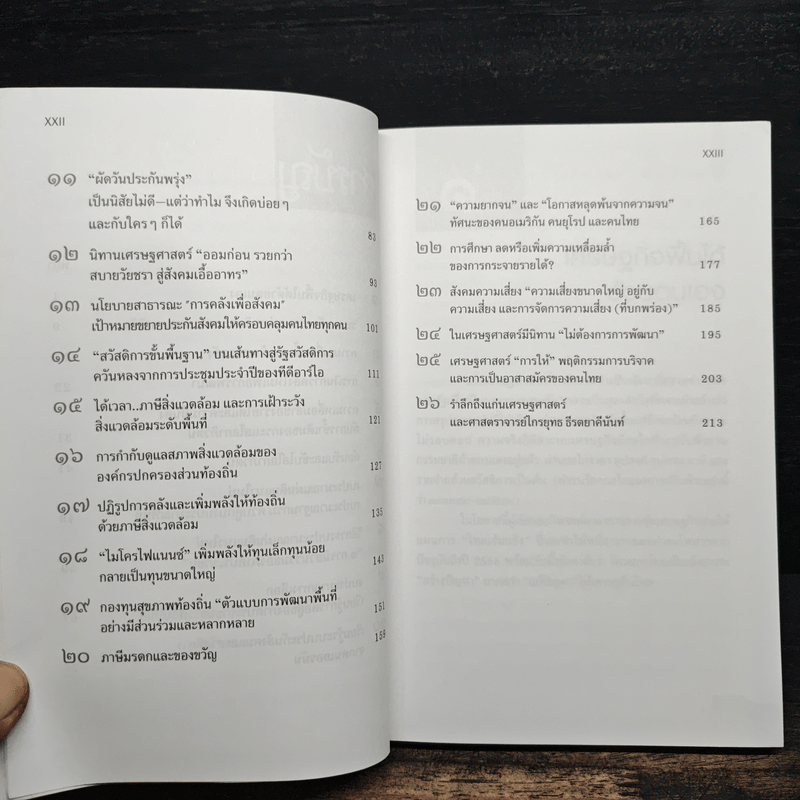 XXII
๑๑ “ผัดวันประกันพรุ่ง”
เป็นนิสัยไม่ดี—แต่ว่าทำไม จึงเกิดบ่อยๆ
และกับใครๆ ก็ได้ 83
๑๒ นิทานเศรษฐศาสตร์ “ออมก่อน รวยกว่า
สบายวัยชรา สู่สังคมเอื้ออาทร” 93
๑๓ นโยบายสาธารณะ “การคลังเพื่อสังคม”
เป้าหมายขยายประกันสังคมให้ครอบคลุมคนไทยทุกคน 101
๑๔ “สวัสดิการขั้นพื้นฐาน” บนเส้นทางสู่รัฐสวัสดิการ
ควันหลงจากการประชุมประจำปีของทีดีอาร์ไอ 111
๑๕ ได้เวลา..ภาษีสิ่งแวดล้อม และการเฝ้าระวัง
สิ่งแวดล้อมระดับพื้นที่ 121
๑๖ การกำกับดูแลสภาพสิ่งแวดล้อมของ
องค์กรปกครองส่วนท้องถิ่น 127
๑๗ ปฏิรูปการคลังและเพิ่มพลังให้ท้องถิ่น
ด้วยภาษีสิ่งแวดล้อม 135
๑๘ “ไมโครไฟแนนซ์” เพิ่มพลังให้ทุนเล็กทุนน้อย
กลายเป็นทุนขนาดใหญ่ 143
๑๙ กองทุนสุขภาพท้องถิ่น “ตัวแบบการพัฒนาพื้นที่
อย่างมีส่วนร่วมและหลากหลาย 151
๒๐ ภาษีมรดกและของขวัญ 159
XXIII
๒๑ “ความยากจน” และ “โอกาสหลุดพ้นจากความจน”
ทัศนะของคนอเมริกัน คนยุโรป และคนไทย 165
๒๒ การศึกษา ลดหรือเพิ่มความเหลื่อมล้ำ
ของการกระจายรายได้? 177
๒๓ สังคมความเสี่ยง “ความเสี่ยงขนาดใหญ่ อยู่กับ
ความเสี่ยง และการจัดการความเสี่ยง (ที่บกพร่อง)” 185
๒๔ ในเศรษฐศาสตร์มีนิทาน “ไม่ต้องการการพัฒนา” 195
๒๕ เศรษฐศาสตร์ “การให้” พฤติกรรมการบริจาค
และการเป็นอาสาสมัครของคนไทย 203
๒๖ รำลึกถึงแก่นเศรษฐศาสตร์
และศาสตราจารย์ไกรยุทธ ธีรตยาคีนันท์ 213